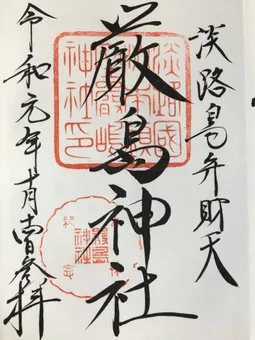 淡路島弁財天
厳島神社
令和元年十月吉日参拝
淡路國
厳嶋
神社印
厳島
神社